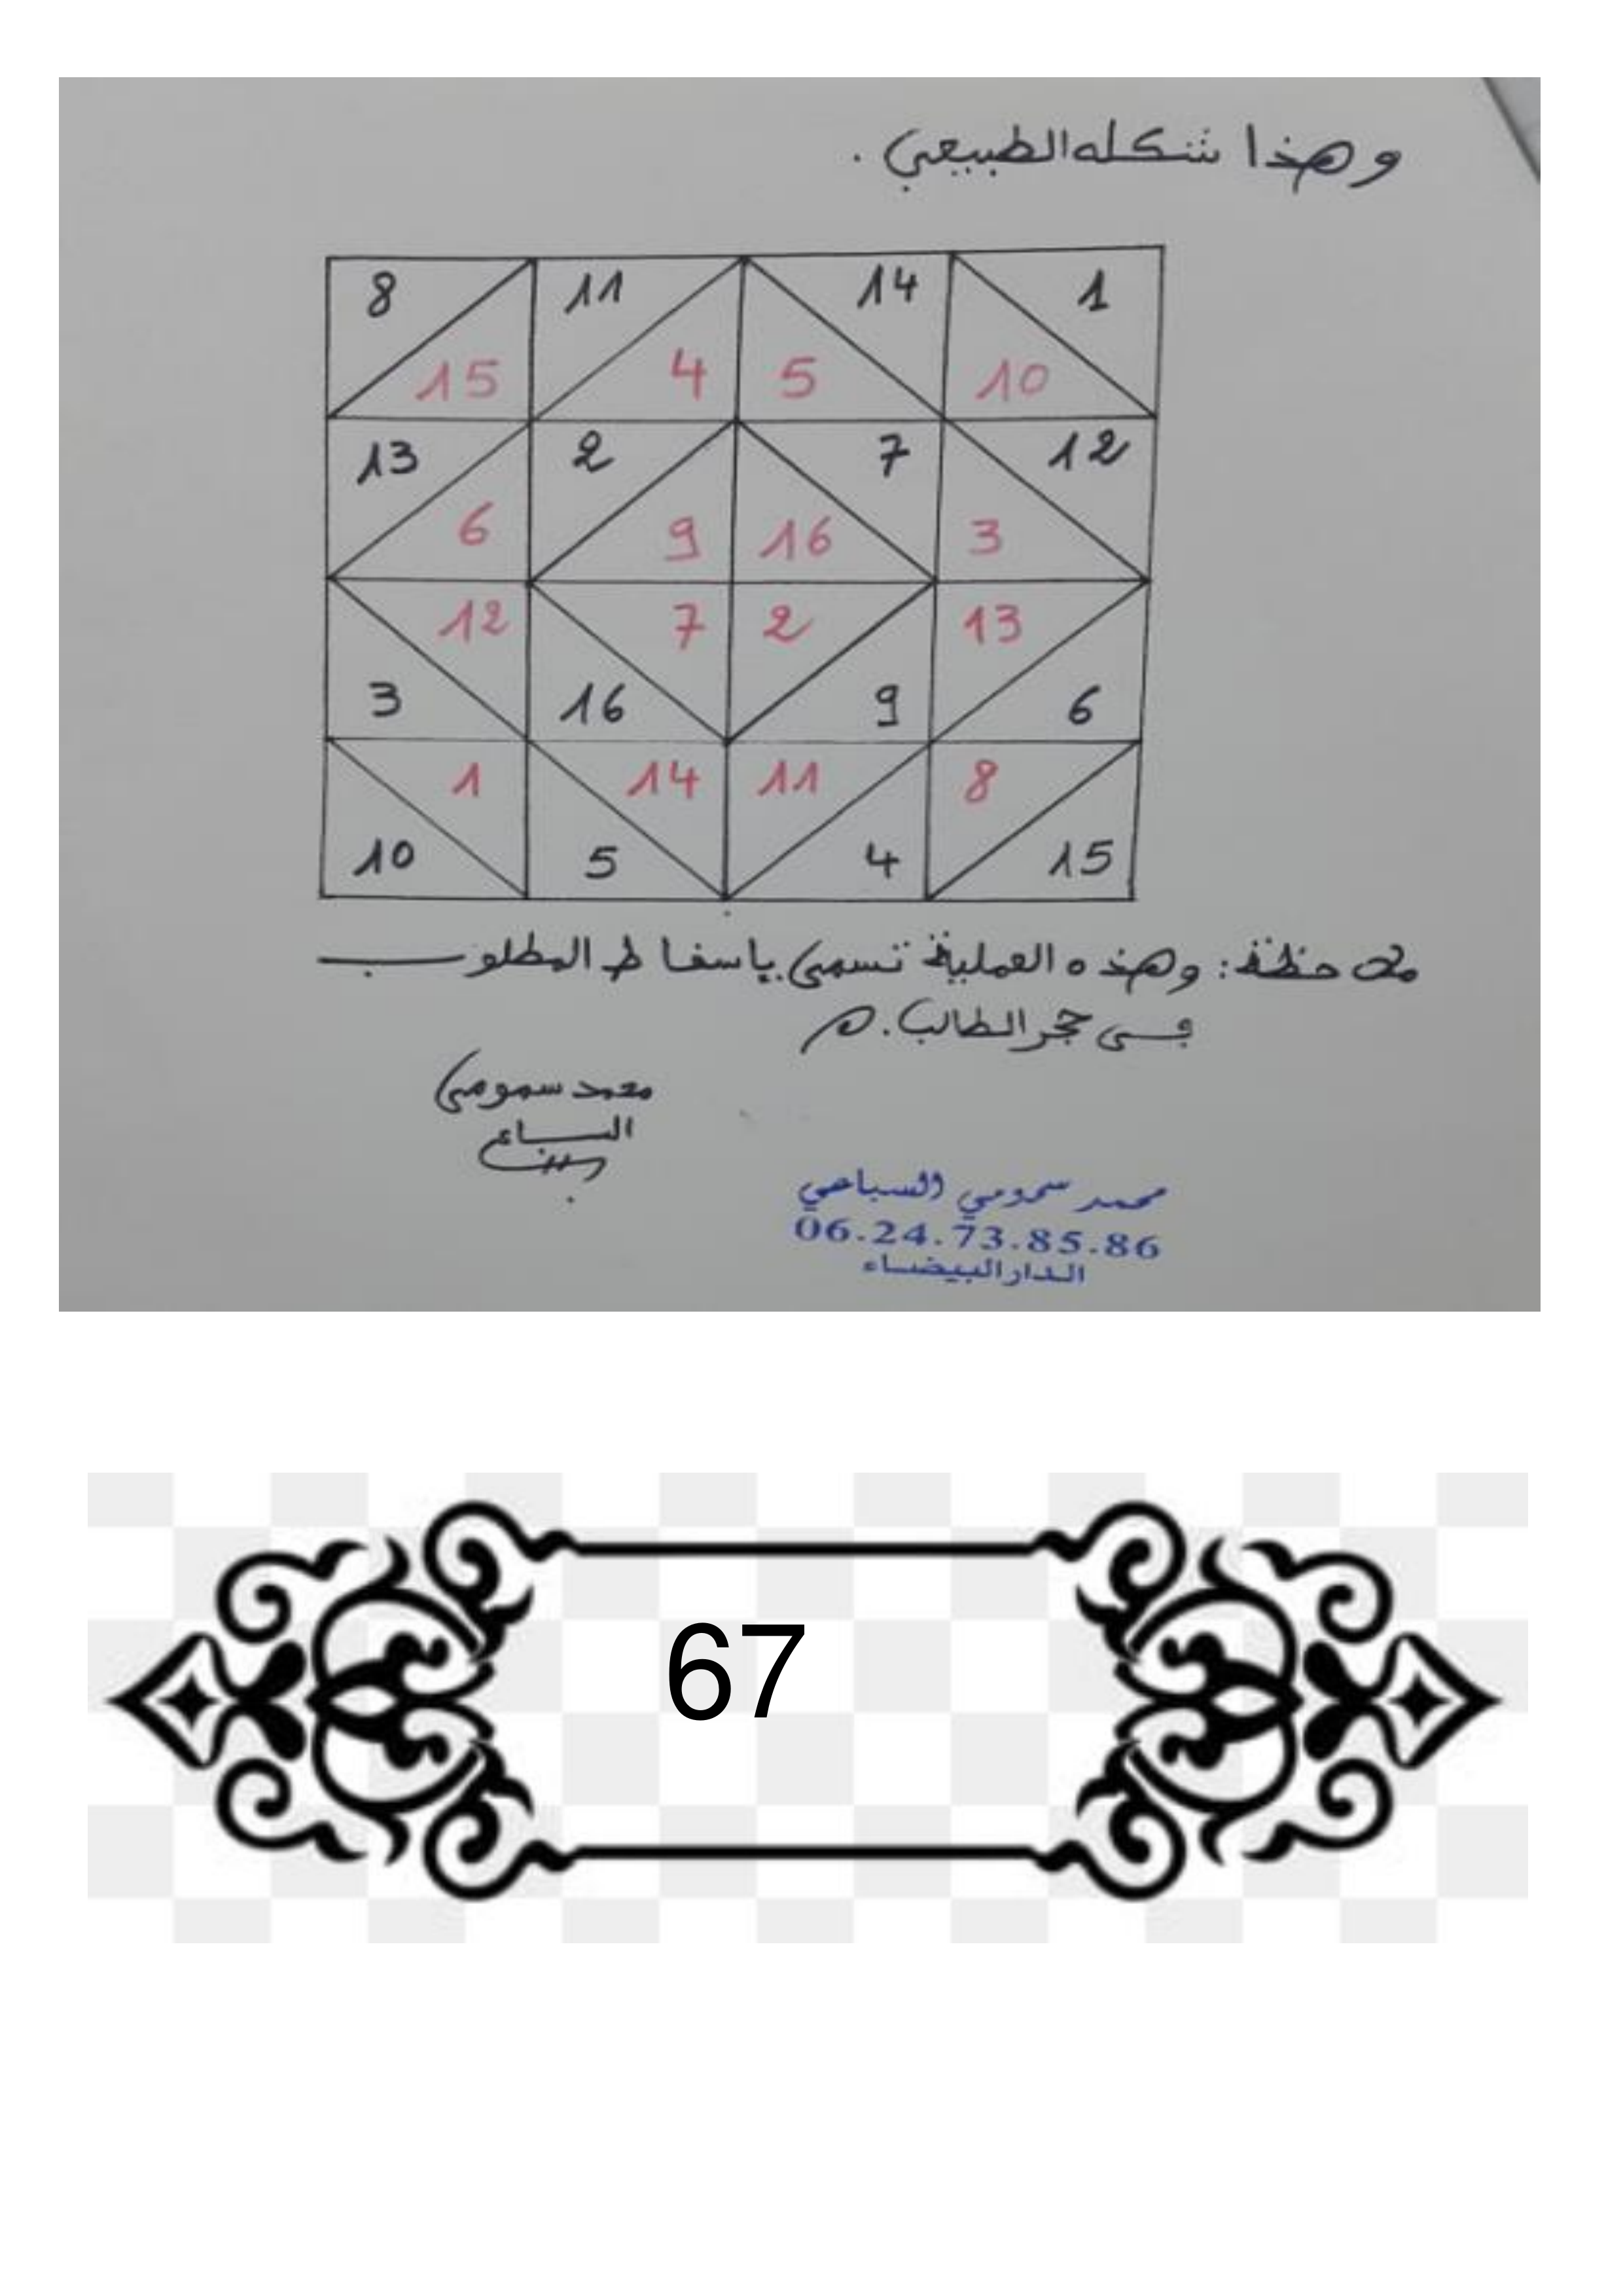 وهذا شكله الطبيعي .
8 11 14 1
15 4 5 10
13 2 7 12
6 9 16 3
12 7 2 13
3 16 9 6
1 14 11 8
10 5 4 15
ملاحظة: وهذه العملية تسمى بإسقاط المطلوب
في حجر الطالب. م
محمد سمومي
السباعي
محمد سمومي السباعي
06.24.73.85.86
الدار البيضاء
67